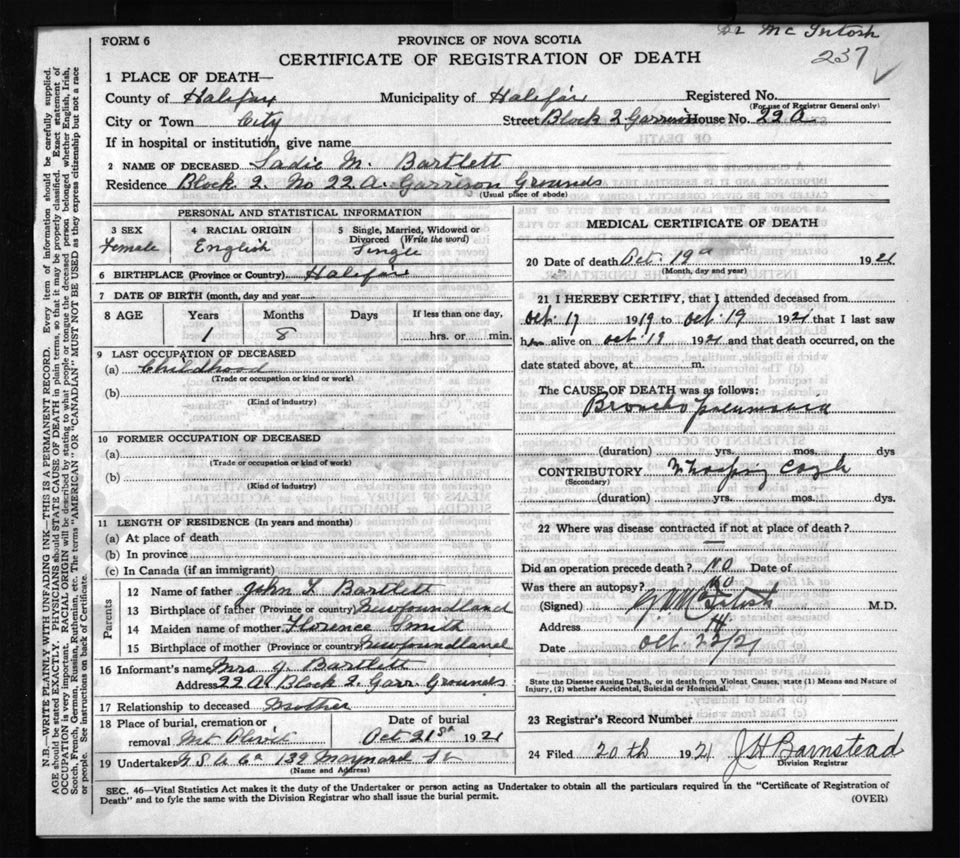 Dr McIntosh
237
FORM 6
PROVINCE OF NOVA SCOTIA
CERTIFICATE OF REGISTRATION OF DEATH
N.B.—WRITE PLAINLY, WITH UNFADING INK—THIS IS A PERMANENT RECORD. Every item of information should be carefully supplied.
AGE should be stated EXACTLY. PHYSICIANS should STATE CAUSE OF DEATH in plain terms, so that it may be properly classified. Exact statement of
OCCUPATION is very important. RACIAL ORIGIN will be described by stating to what people or tongue the deceased person belonged whether English, Irish,
Scotch, French, German, Russian, Ruthenian, etc. The terms "AMERICAN" OR "CANADIAN" MUST NOT BE USED as they express citizenship but not a race
or people. See instructions on back of Certificate.
1 PLACE OF DEATH—
County of Halifax Municipality of Halifax Registered No.
(For use of Registrar General only)
City or Town City Street Block 2 Garrison House No. 22 A
If in hospital or institution, give name
2 NAME OF DECEASED Sadie M. Bartlett
Residence Block 2. No 22 A. Garrison Grounds
(Usual place of abode)
PERSONAL AND STATISTICAL INFORMATION
3 SEX 4 RACIAL ORIGIN 5 Single, Married, Widowed or
Divorced (Write the word)
Female English Single
6 BIRTHPLACE (Province or Country) Halifax
7 DATE OF BIRTH (month, day and year)
8 AGE Years Months Days If less than one day,
1 8 hrs. or min.
9 LAST OCCUPATION OF DECEASED
(a) Childhood
(Trade or occupation or kind or work)
(b)
(Kind of industry)
10 FORMER OCCUPATION OF DECEASED
(a)
(Trade or occupation or kind of work)
(b)
(Kind of industry)
11 LENGTH OF RESIDENCE (In years and months)
(a) At place of death
(b) In province
(c) In Canada (if an immigrant)
Parents
12 Name of father John L Bartlett
13 Birthplace of father (Province or country) Newfoundland
14 Maiden name of mother Florence Smith
15 Birthplace of mother (Province or country) Newfoundland
16 Informant's name Mrs J. Bartlett
Address 22 A. Block 2. Garr. Grounds
17 Relationship to deceased Mother
18 Place of burial, cremation or Date of burial
removal Mt Olivet Oct 21st 1921
19 Undertaker 132 Maynard St
(Name and Address)
MEDICAL CERTIFICATE OF DEATH
20 Date of death Oct. 19 1921
(Month, day and year)
21 I HEREBY CERTIFY, that I attended deceased from
Oct. 17 1919 to Oct. 19 1921 that I last saw
alive on Oct. 19 1921 and that death occurred, on the
date stated above, at m.
The CAUSE OF DEATH was as follows:
Broncho pneumonia
(duration) yrs. mos. dys
CONTRIBUTORY Whooping Cough
(Secondary)
(duration) yrs. mos. dys.
22 Where was disease contracted if not at place of death?
—
Did an operation precede death? No Date of
Was there an autopsy? No
(Signed) McIntosh M.D.
Address
Date Oct. 22/21
State the Disease causing Death, or in death from Violent Causes, state (1) Means and Nature of
Injury, (2) whether Accidental, Suicidal or Homicidal.
23 Registrar's Record Number
24 Filed 20th 1921 J H Barnstead
Division Registrar
SEC. 46—Vital Statistics Act makes it the duty of the Undertaker or person acting as Undertaker to obtain all the particulars required in the "Certificate of Registration of
Death" and to fyle the same with the Division Registrar who shall issue the burial permit. (OVER)